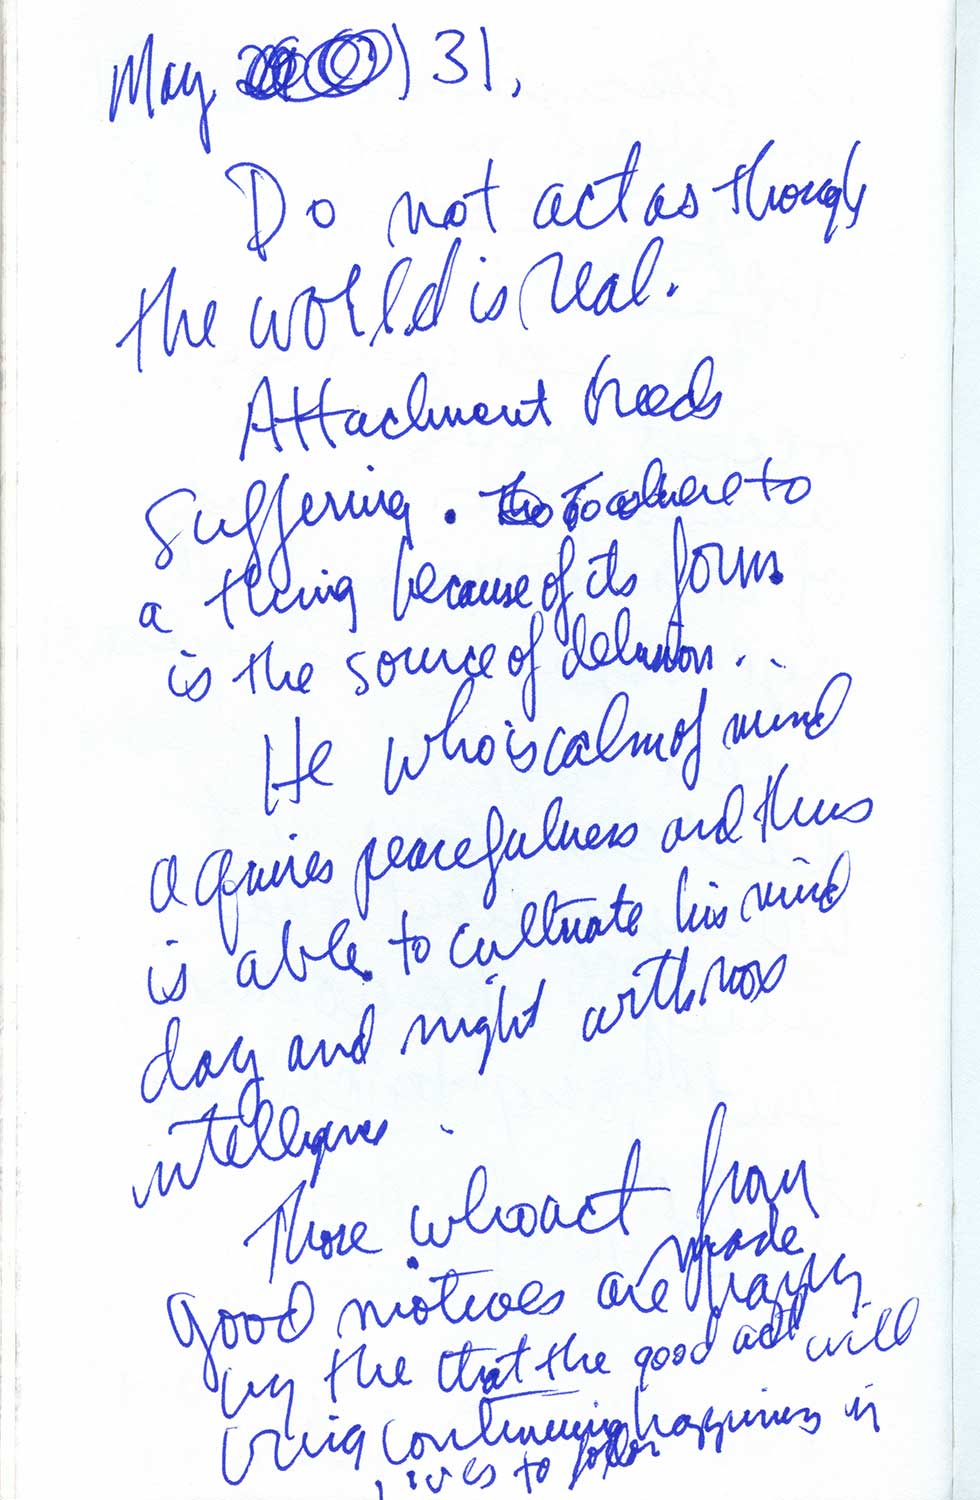 May 31,
Do not act as though
the world is real.
Attachment breeds
suffering. To adhere to
a thing because of its form
is the source of delusion..
He who is calm of mind
aquires peacefulness and thus
is able to cultivate his mind
day and night with
intelligence
Those who act from
good motives are made happy
by the that the good act will
bring continuing happiness in
lives to follow